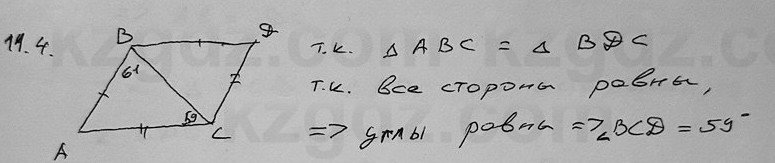 19.4.
B
D
61
59
A
C
т.к. △ ABC = △ BDC
т.к. все стороны равны,
=> углы равны => ∠BCD = 59°
kzgdz.com